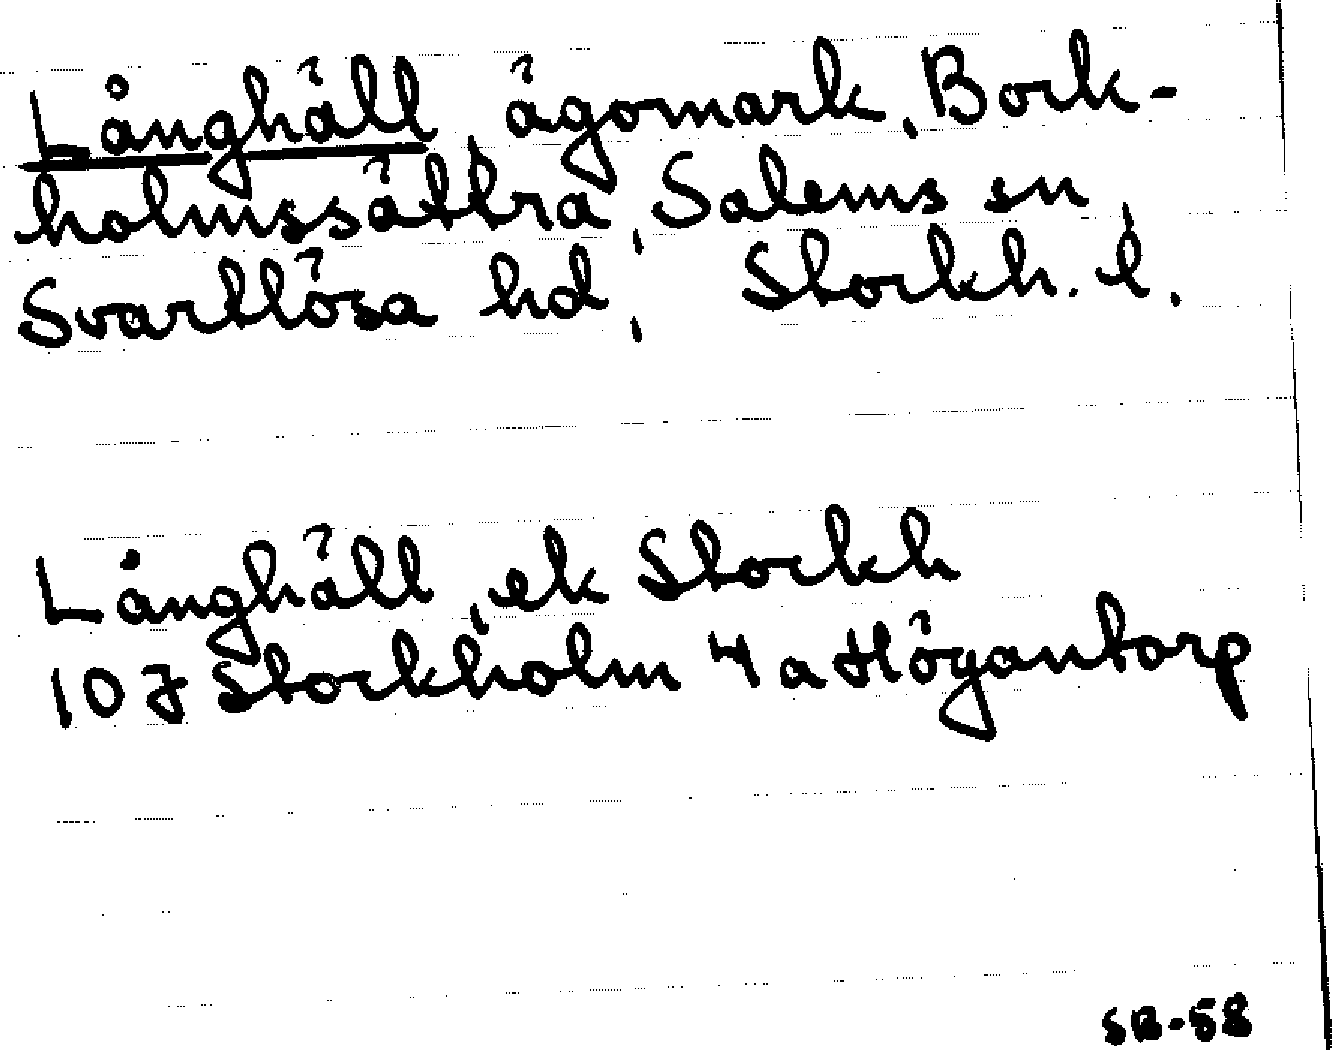 Långhäll, ägomark, Bork-
holmssättra, Salems sn,
Svartlösa hd, Stockh. l.
Långhäll, ek Stockh
10 J Stockholm 4 a Högantorp
SB-58